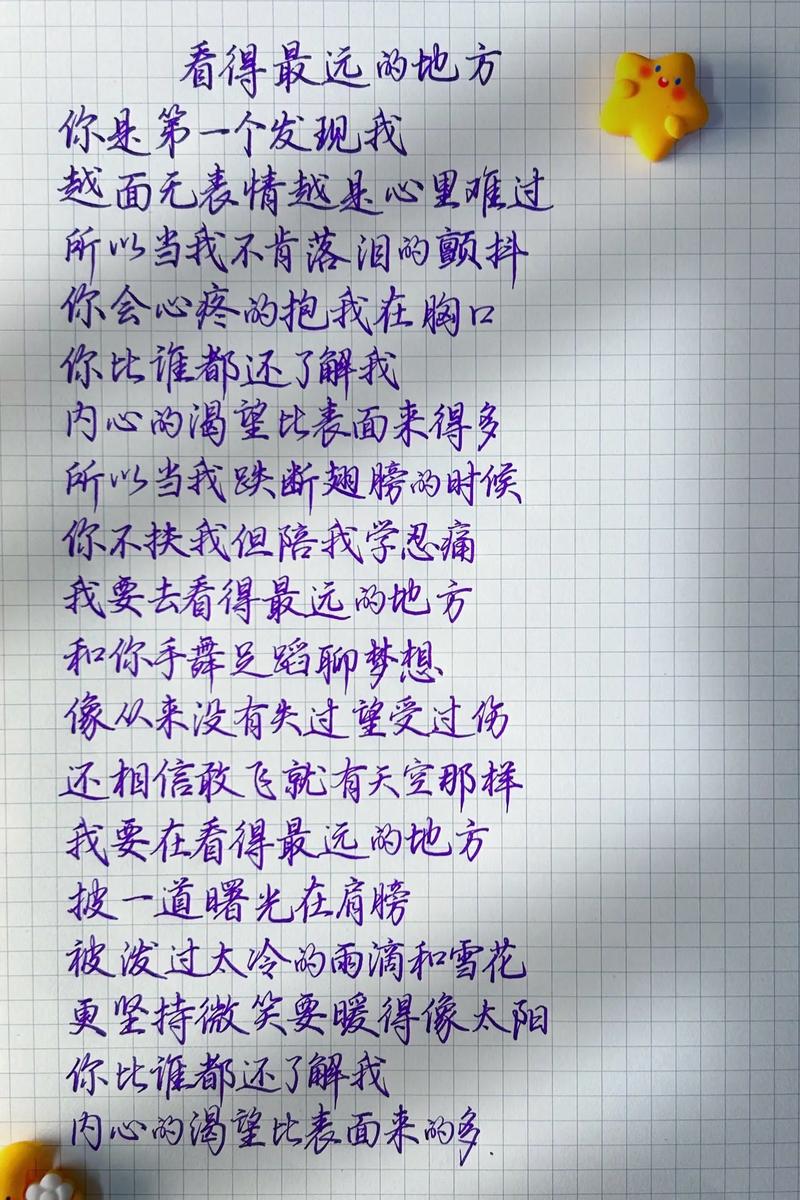 看得最远的地方
你是第一个发现我
越面无表情越是心里难过
所以当我不肯落泪的颤抖
你会心疼的抱我在胸口
你比谁都还了解我
内心的渴望比表面来得多
所以当我跌断翅膀的时候
你不扶我但陪我学忍痛
我要去看得最远的地方
和你手舞足蹈聊梦想
像从来没有失过望受过伤
还相信敢飞就有天空那样
我要在看得最远的地方
披一道曙光在肩膀
被泼过太冷的雨滴和雪花
更坚持微笑要暖得像太阳
你比谁都还了解我
内心的渴望比表面来的多.